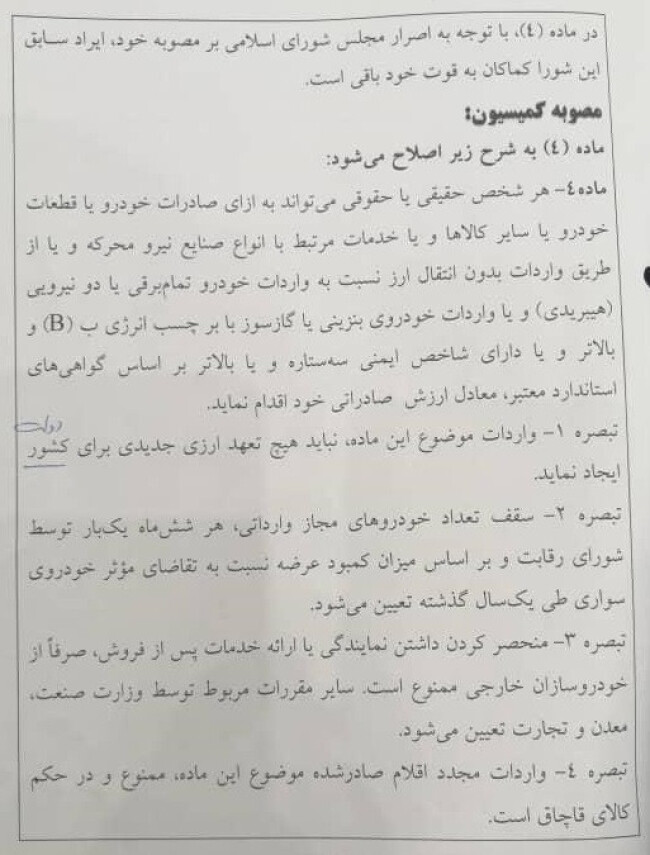 در ماده (٤)، با توجه به اصرار مجلس شورای اسلامی بر مصوبه خود، ایراد سـابق
این شورا کماکان به قوت خود باقی است.
مصوبه کمیسیون:
ماده (٤) به شرح زیر اصلاح می‌شود:
ماده٤- هر شخص حقیقی یا حقوقی می‌تواند به ازای صادرات خودرو یا قطعات
خودرو یا سایر کالاها و یا خدمات مرتبط با انواع صنایع نیرو محرکه و یا از
طریق واردات بدون انتقال ارز نسبت به واردات خودرو تمام‌برقی یا دو نیرویی
(هیبریدی) و یا واردات خودروی بنزینی یا گازسوز با بر چسب انرژی ب (B) و
بالاتر و یا دارای شاخص ایمنی سه‌ستاره و یا بالاتر بر اساس گواهی‌های
استاندارد معتبر، معادل ارزش صادراتی خود اقدام نماید.
دولت
تبصره ۱- واردات موضوع این ماده، نباید هیچ تعهد ارزی جدیدی برای کشور
ایجاد نماید.
تبصره ۲- سقف تعداد خودروهای مجاز وارداتی، هر شش‌ماه یک‌بار توسط
شورای رقابت و بر اساس میزان کمبود عرضه نسبت به تقاضای مؤثر خودروی
سواری طی یک‌سال گذشته تعیین می‌شود.
تبصره ۳- منحصر کردن داشتن نمایندگی یا ارائه خدمات پس از فروش، صرفاً از
خودروسازان خارجی ممنوع است. سایر مقررات مربوط توسط وزارت صنعت،
معدن و تجارت تعیین می‌شود.
تبصره ٤- واردات مجدد اقلام صادرشده موضوع این ماده، ممنوع و در حکم
کالای قاچاق است.